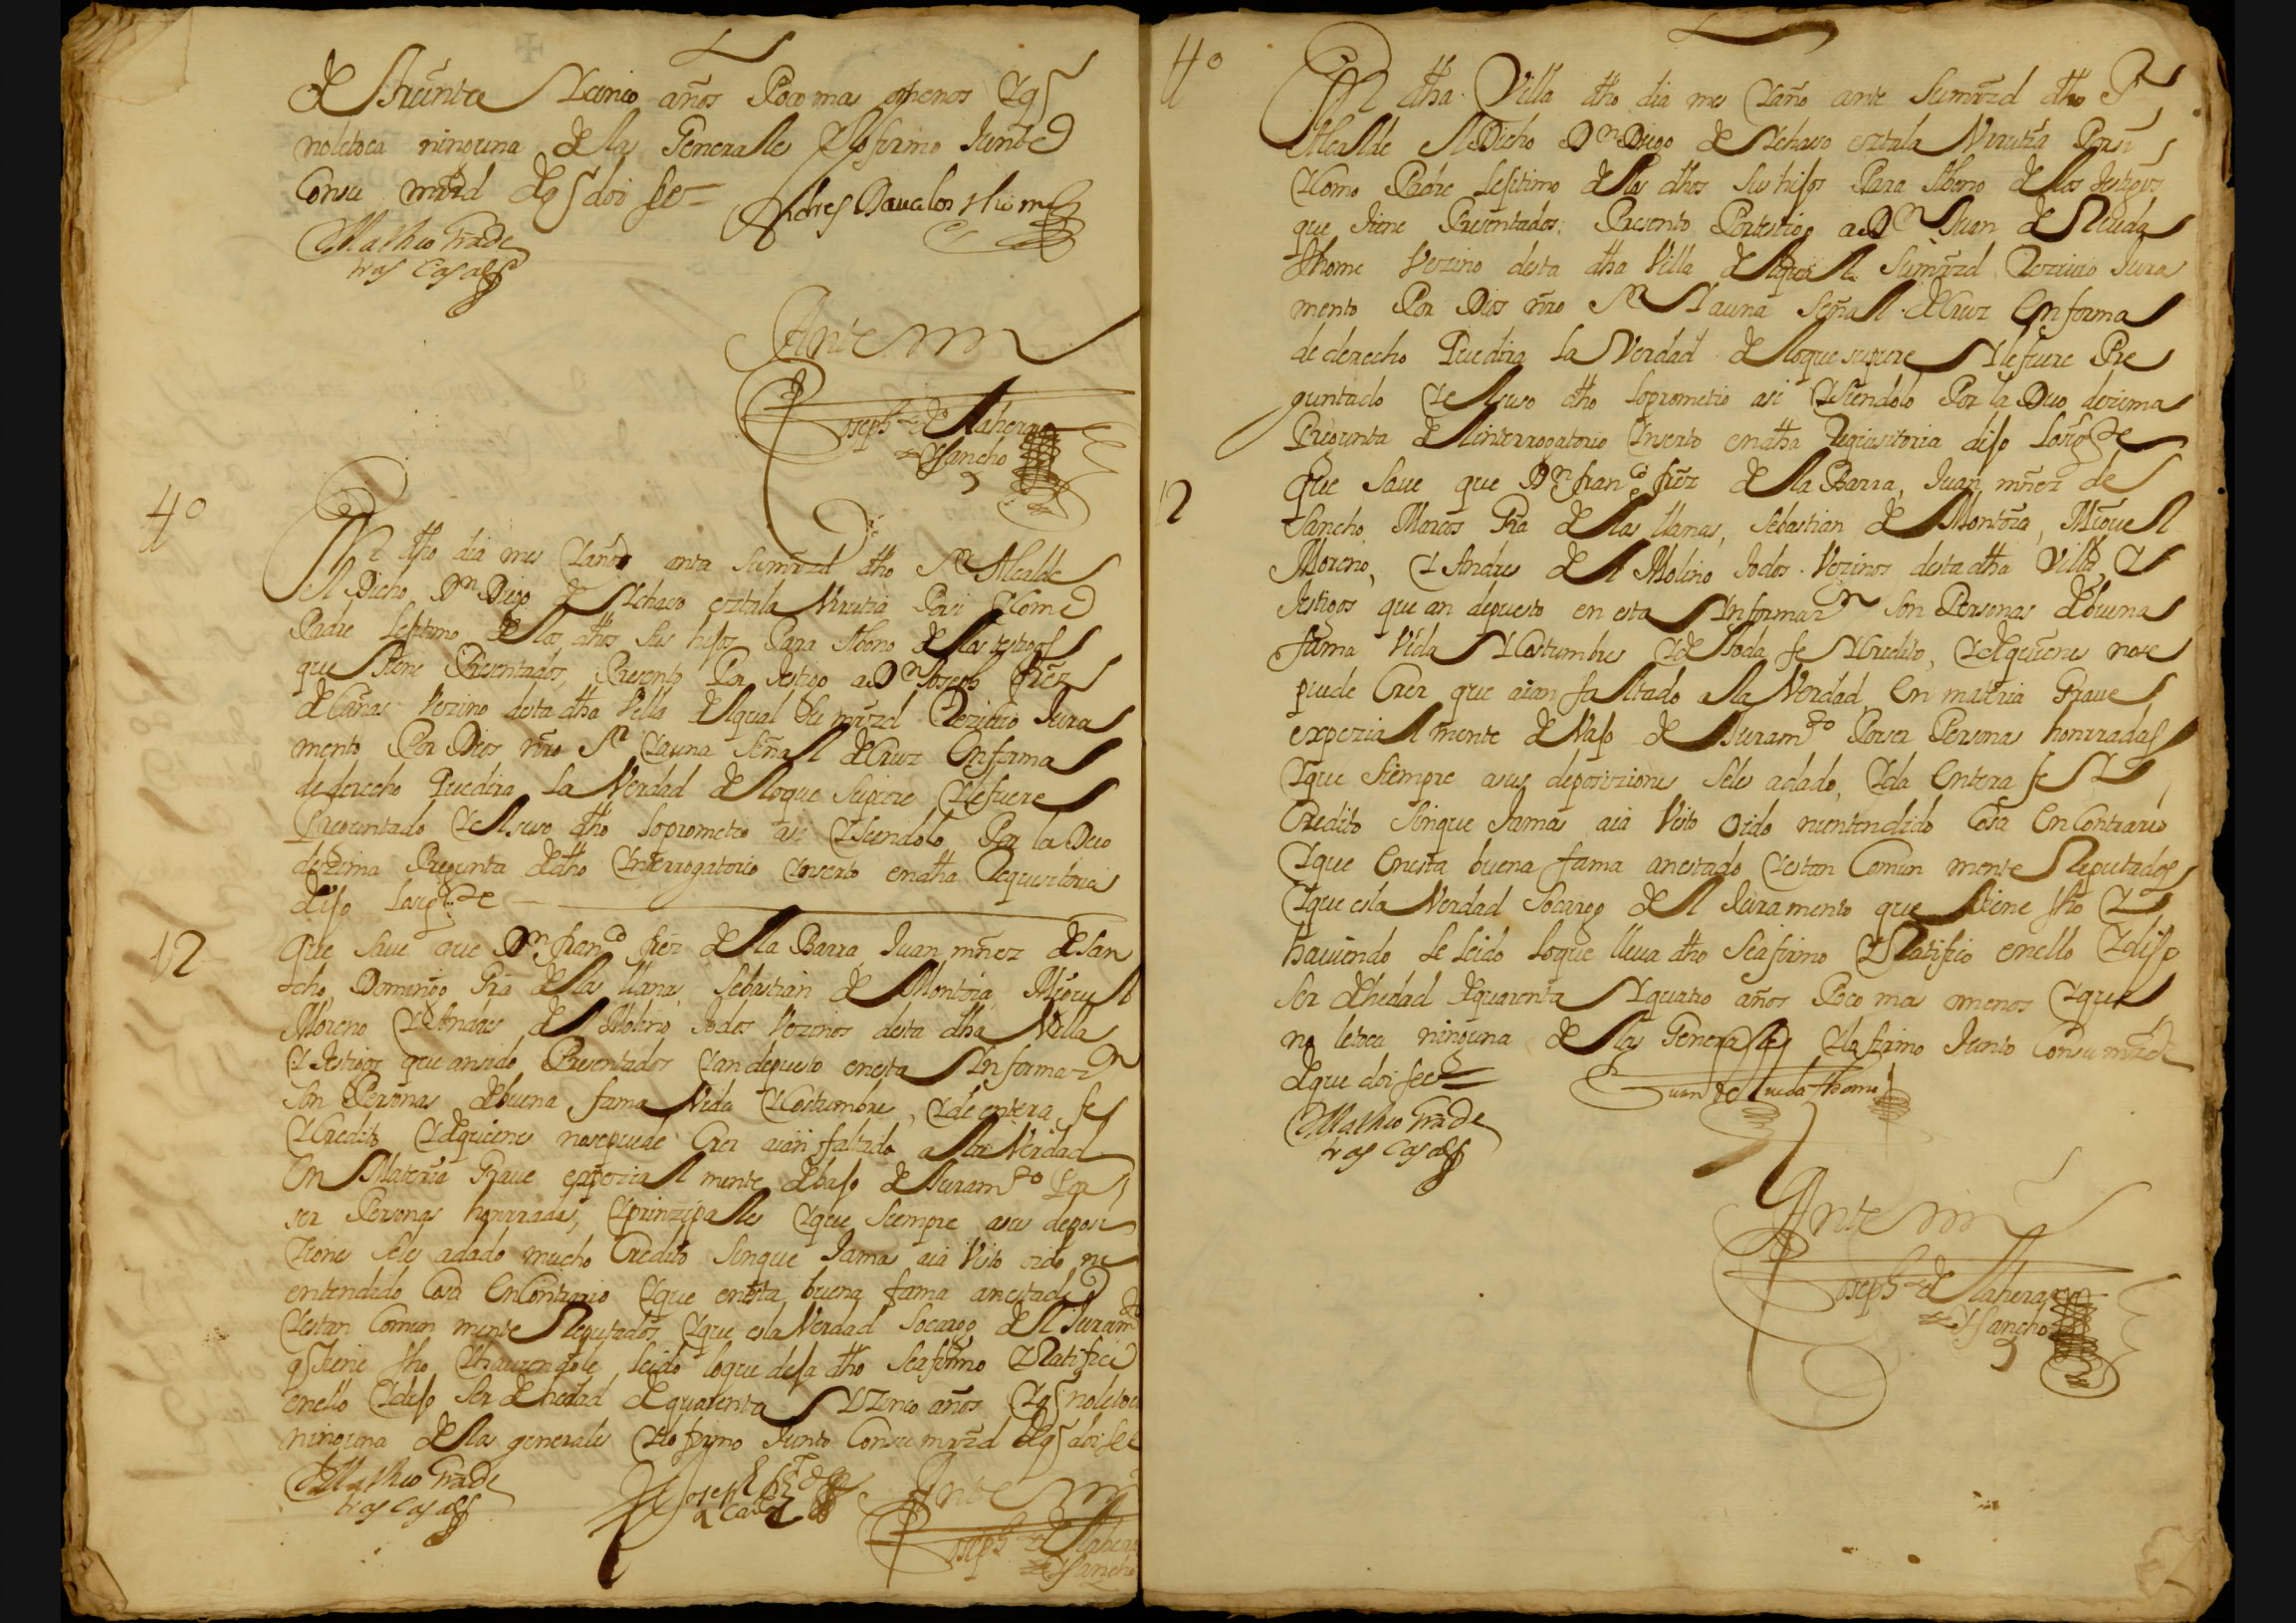 de treinta y cinco años Poco mas omenos Yq
noletoca ninguna de las Generales Ylofirmo Junto
Consu mrzd deq doi fee=
Andres Davalos thome
Matheo Frade
tras Casas
Ante mi
Joseph de la hera
Ysancho
4º
En dho dia mes Yaño ante Sumrzd dho Sr Alcalde
el Dicho Dn Diego de echavo Verutia Porsi Ycomo
Padre Lejitimo de los dhos Sus hijos Para Abono de los testigos
que tiene Presentados, Presento Por testigo a Dn Joseph frez
de Cañas Vezino desta dha Villa del qual Su mrzd Rezivio Jura
mento Por Dios nro Sr Yauna Señal de Cruz En forma
de derecho Quedira La Verdad de loque Supiere Ylefuere
Preguntado Yel suso dho loprometio asi Ysiendolo Por la Duo
dezima Pregunta de dho Interrogatorio Ynserto en dha Requisitoria
dijo loq sigte
12
Que Save que Dn franco frez de la Barra Juan mñez de San
cho, Domingo Gra de las llanas, Sebastian de Montoia, Miguel
Moreno Y Andres del Molino todos Vezinos desta dha Villa
Y testigos que ansido Presentados Yan depuesto enesta Informazn
Son Personas debuena fama Vida Y Costumbres, Yde entera fe
Y Credito, Yde quienes nosepuede Creer aian faltado a la Verdad
En Materia Grave espezial mente debajo de Juramto Por
ser Personas honrradas, Y prinzipales Yque Siempre asus deposi
ziones seles adado mucho Credito Sinque Jamas aia Visto oido ni
entendido Cosa En Contrario Yque enesta buena fama anestado
Yestan Comun mente Reputados, Yque esla Verdad Socargo del Juramto
q tiene fho Yhaviendole leido loque deja dho Seafirmo YRatifico
enello Ydijo Ser de hedad dequarenta Y Zinco años Yq noletoca
ninguna de las generales Ylo firmo Junto Consu mrzd deq doi fee
Matheo Frade
tras Casas
Joseph frz
de Cañas
Ante mi
Joseph de la hera
Ysancho
4º
En dha Villa dho dia mes Yaño ante Sumrzd dho Sr
Alcalde el Dicho Dn Diego de echavo Verutia Porsi
Ycomo Padre Lejitimo de los dhos Sus hijos Para Abono de los testigos
que tiene Presentados; Presento Portestigo a Dn Juan de Rueda
thome Vezino desta dha Villa del qual Sumrzd Rezivio Jura
mento Por Dios nro Sr Yauna Señal de Cruz En forma
de derecho Quedira La Verdad de loque supiere Ylefuere Pre
guntado Yel suso dho loprometio asi Ysiendolo Por la Duo dezima
Pregunta del interrogatorio Ynserto endha Requisitoria dijo loq sigte
12
Que Save que Dn franco frez de la Barra, Juan mñez de
Sancho, Marcos Gra de las llanas, Sebastian de Montoia, Miguel
Moreno, Y Andres del Molino todos Vezinos desta dha Villa, Y
testigos que an depuesto en esta Informazn Son Personas debuena
fama Vida Y Costumbres Yde toda fe Y Credito, Yde quienes nose
puede Creer que aian faltado a la Verdad En materia Grave
expezial mente de Vajo de Juramto Porser Personas honrradas
Yque Siempre asus deposiziones Seles adado, Yda Entera fe Y
Credito Sinque Jamas aia Visto oido nientendido Cosa En Contrario
Yque Enesta buena fama anestado Yestan Comun mente Reputados
Yque esla Verdad Socargo del Juramento que tiene fho Y
haviendo le leido loque lleva dho Seafirmo YRatifico enello Ydijo
Ser dehedad dequarenta Y quatro años Poco mas omenos Yque
no letoca ninguna de las Generales Ylafirmo Junto Consumrzd
deque doi fee
Juan de Rueda thome
Matheo Frade
tras Casas
Ante mi
Joseph de la hera
Ysancho